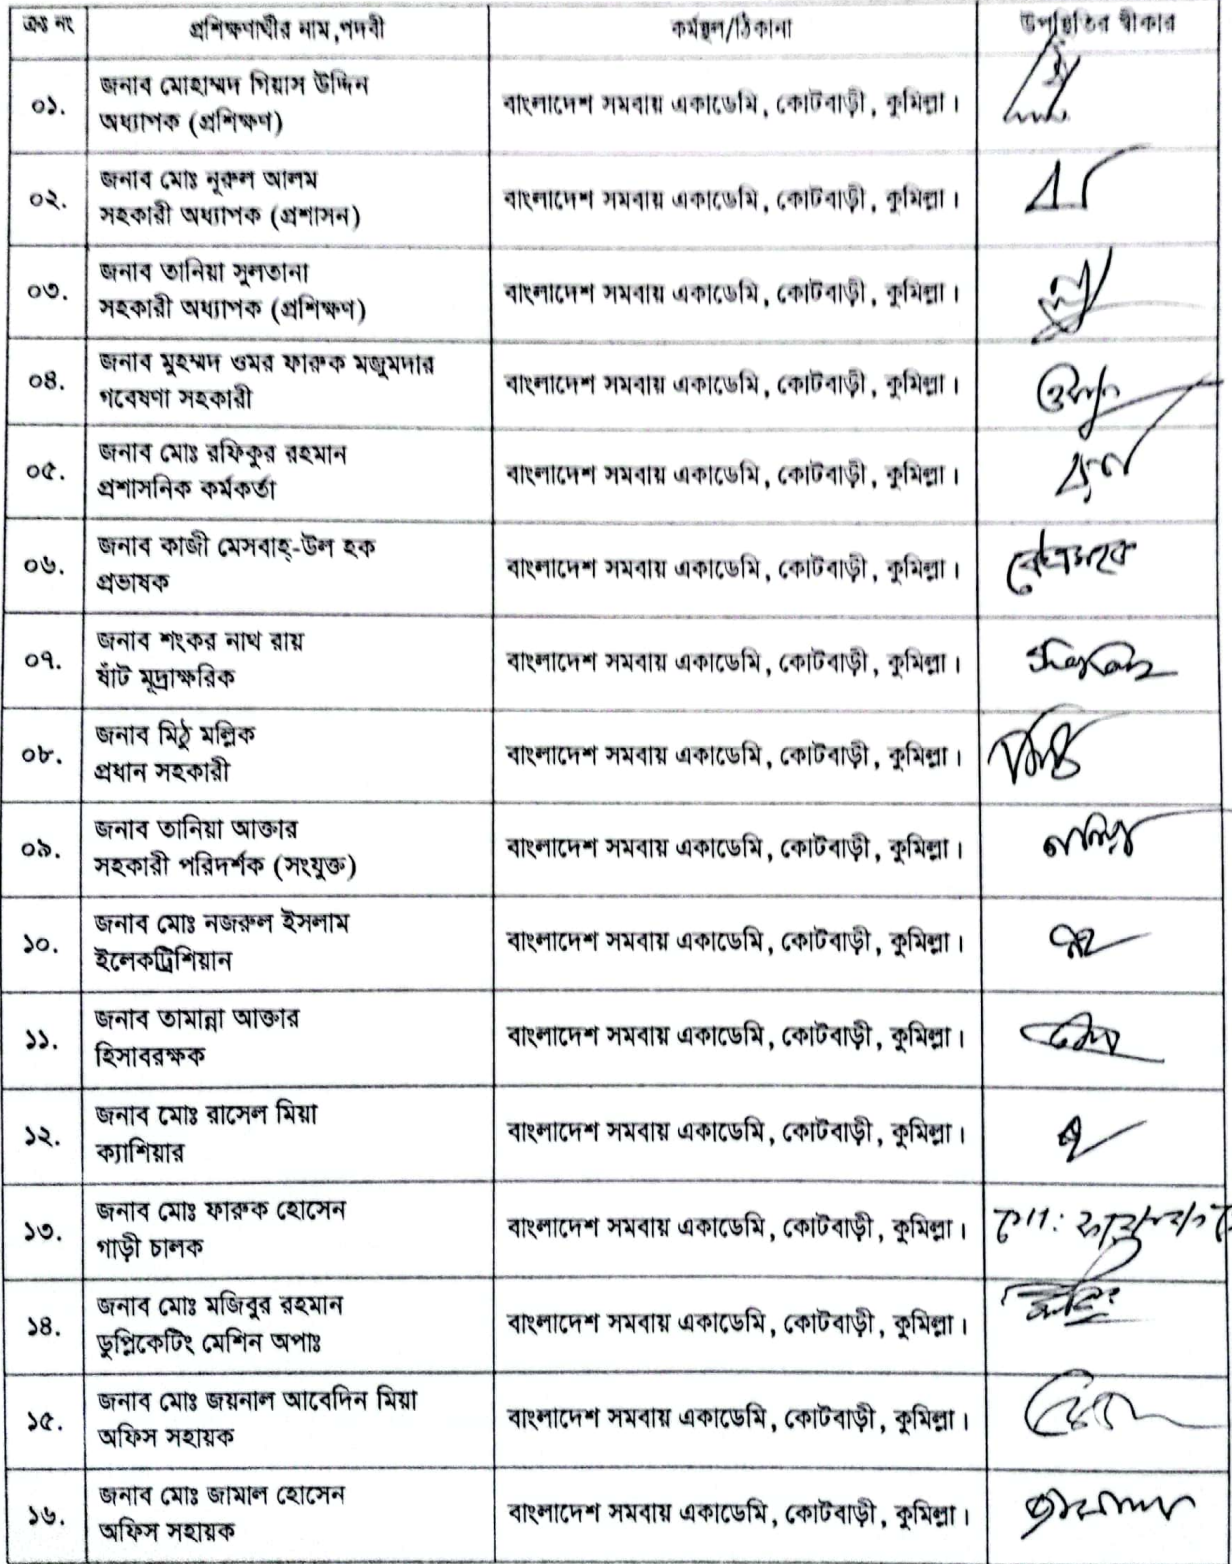 ক্রঃ নং প্রশিক্ষণার্থীর নাম,পদবী কর্মস্থল/ঠিকানা উপস্থিতির স্বীকার
০১. জনাব মোহাম্মদ গিয়াস উদ্দিন
অধ্যাপক (প্রশিক্ষণ) বাংলাদেশ সমবায় একাডেমি, কোটবাড়ী, কুমিল্লা।
০২. জনাব মোঃ নূরুল আলম
সহকারী অধ্যাপক (প্রশাসন) বাংলাদেশ সমবায় একাডেমি, কোটবাড়ী, কুমিল্লা।
০৩. জনাব তানিয়া সুলতানা
সহকারী অধ্যাপক (প্রশিক্ষণ) বাংলাদেশ সমবায় একাডেমি, কোটবাড়ী, কুমিল্লা।
০৪. জনাব মুহম্মদ ওমর ফারুক মজুমদার
গবেষণা সহকারী বাংলাদেশ সমবায় একাডেমি, কোটবাড়ী, কুমিল্লা।
০৫. জনাব মোঃ রফিকুর রহমান
প্রশাসনিক কর্মকর্তা বাংলাদেশ সমবায় একাডেমি, কোটবাড়ী, কুমিল্লা।
০৬. জনাব কাজী মেসবাহ্-উল হক
প্রভাষক বাংলাদেশ সমবায় একাডেমি, কোটবাড়ী, কুমিল্লা।
০৭. জনাব শংকর নাথ রায়
ষাঁট মূদ্রাক্ষরিক বাংলাদেশ সমবায় একাডেমি, কোটবাড়ী, কুমিল্লা।
০৮. জনাব মিঠু মল্লিক
প্রধান সহকারী বাংলাদেশ সমবায় একাডেমি, কোটবাড়ী, কুমিল্লা।
০৯. জনাব তানিয়া আক্তার
সহকারী পরিদর্শক (সংযুক্ত) বাংলাদেশ সমবায় একাডেমি, কোটবাড়ী, কুমিল্লা।
১০. জনাব মোঃ নজরুল ইসলাম
ইলেকট্রিশিয়ান বাংলাদেশ সমবায় একাডেমি, কোটবাড়ী, কুমিল্লা।
১১. জনাব তামান্না আক্তার
হিসাবরক্ষক বাংলাদেশ সমবায় একাডেমি, কোটবাড়ী, কুমিল্লা।
১২. জনাব মোঃ রাসেল মিয়া
ক্যাশিয়ার বাংলাদেশ সমবায় একাডেমি, কোটবাড়ী, কুমিল্লা।
১৩. জনাব মোঃ ফারুক হোসেন
গাড়ী চালক বাংলাদেশ সমবায় একাডেমি, কোটবাড়ী, কুমিল্লা।
১৪. জনাব মোঃ মজিবুর রহমান
ডুপ্লিকেটিং মেশিন অপাঃ বাংলাদেশ সমবায় একাডেমি, কোটবাড়ী, কুমিল্লা।
১৫. জনাব মোঃ জয়নাল আবেদিন মিয়া
অফিস সহায়ক বাংলাদেশ সমবায় একাডেমি, কোটবাড়ী, কুমিল্লা।
১৬. জনাব মোঃ জামাল হোসেন
অফিস সহায়ক বাংলাদেশ সমবায় একাডেমি, কোটবাড়ী, কুমিল্লা।